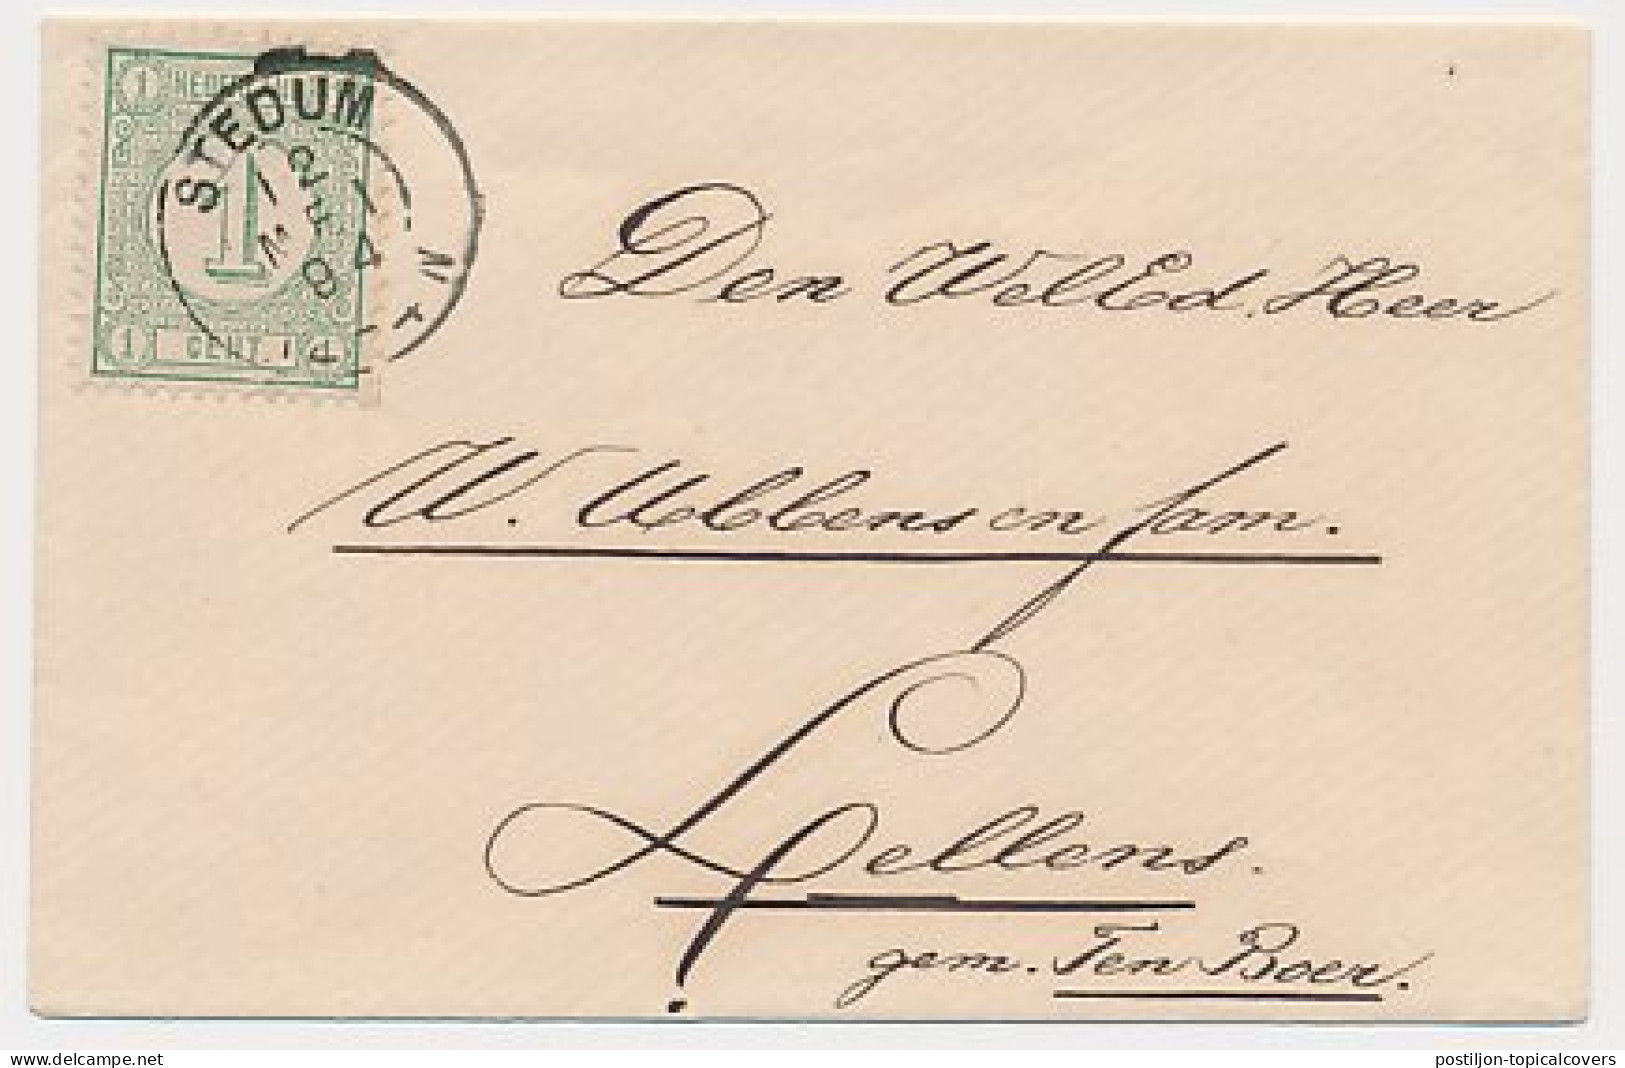 1 NEDERLAND
STEDUM
1
1 CENT 1
Den WelEd. Heer
W. Ubbens en fam.
Lellens.
gem. Ten Boer.
delcampe.net
postiljon-topicalcovers